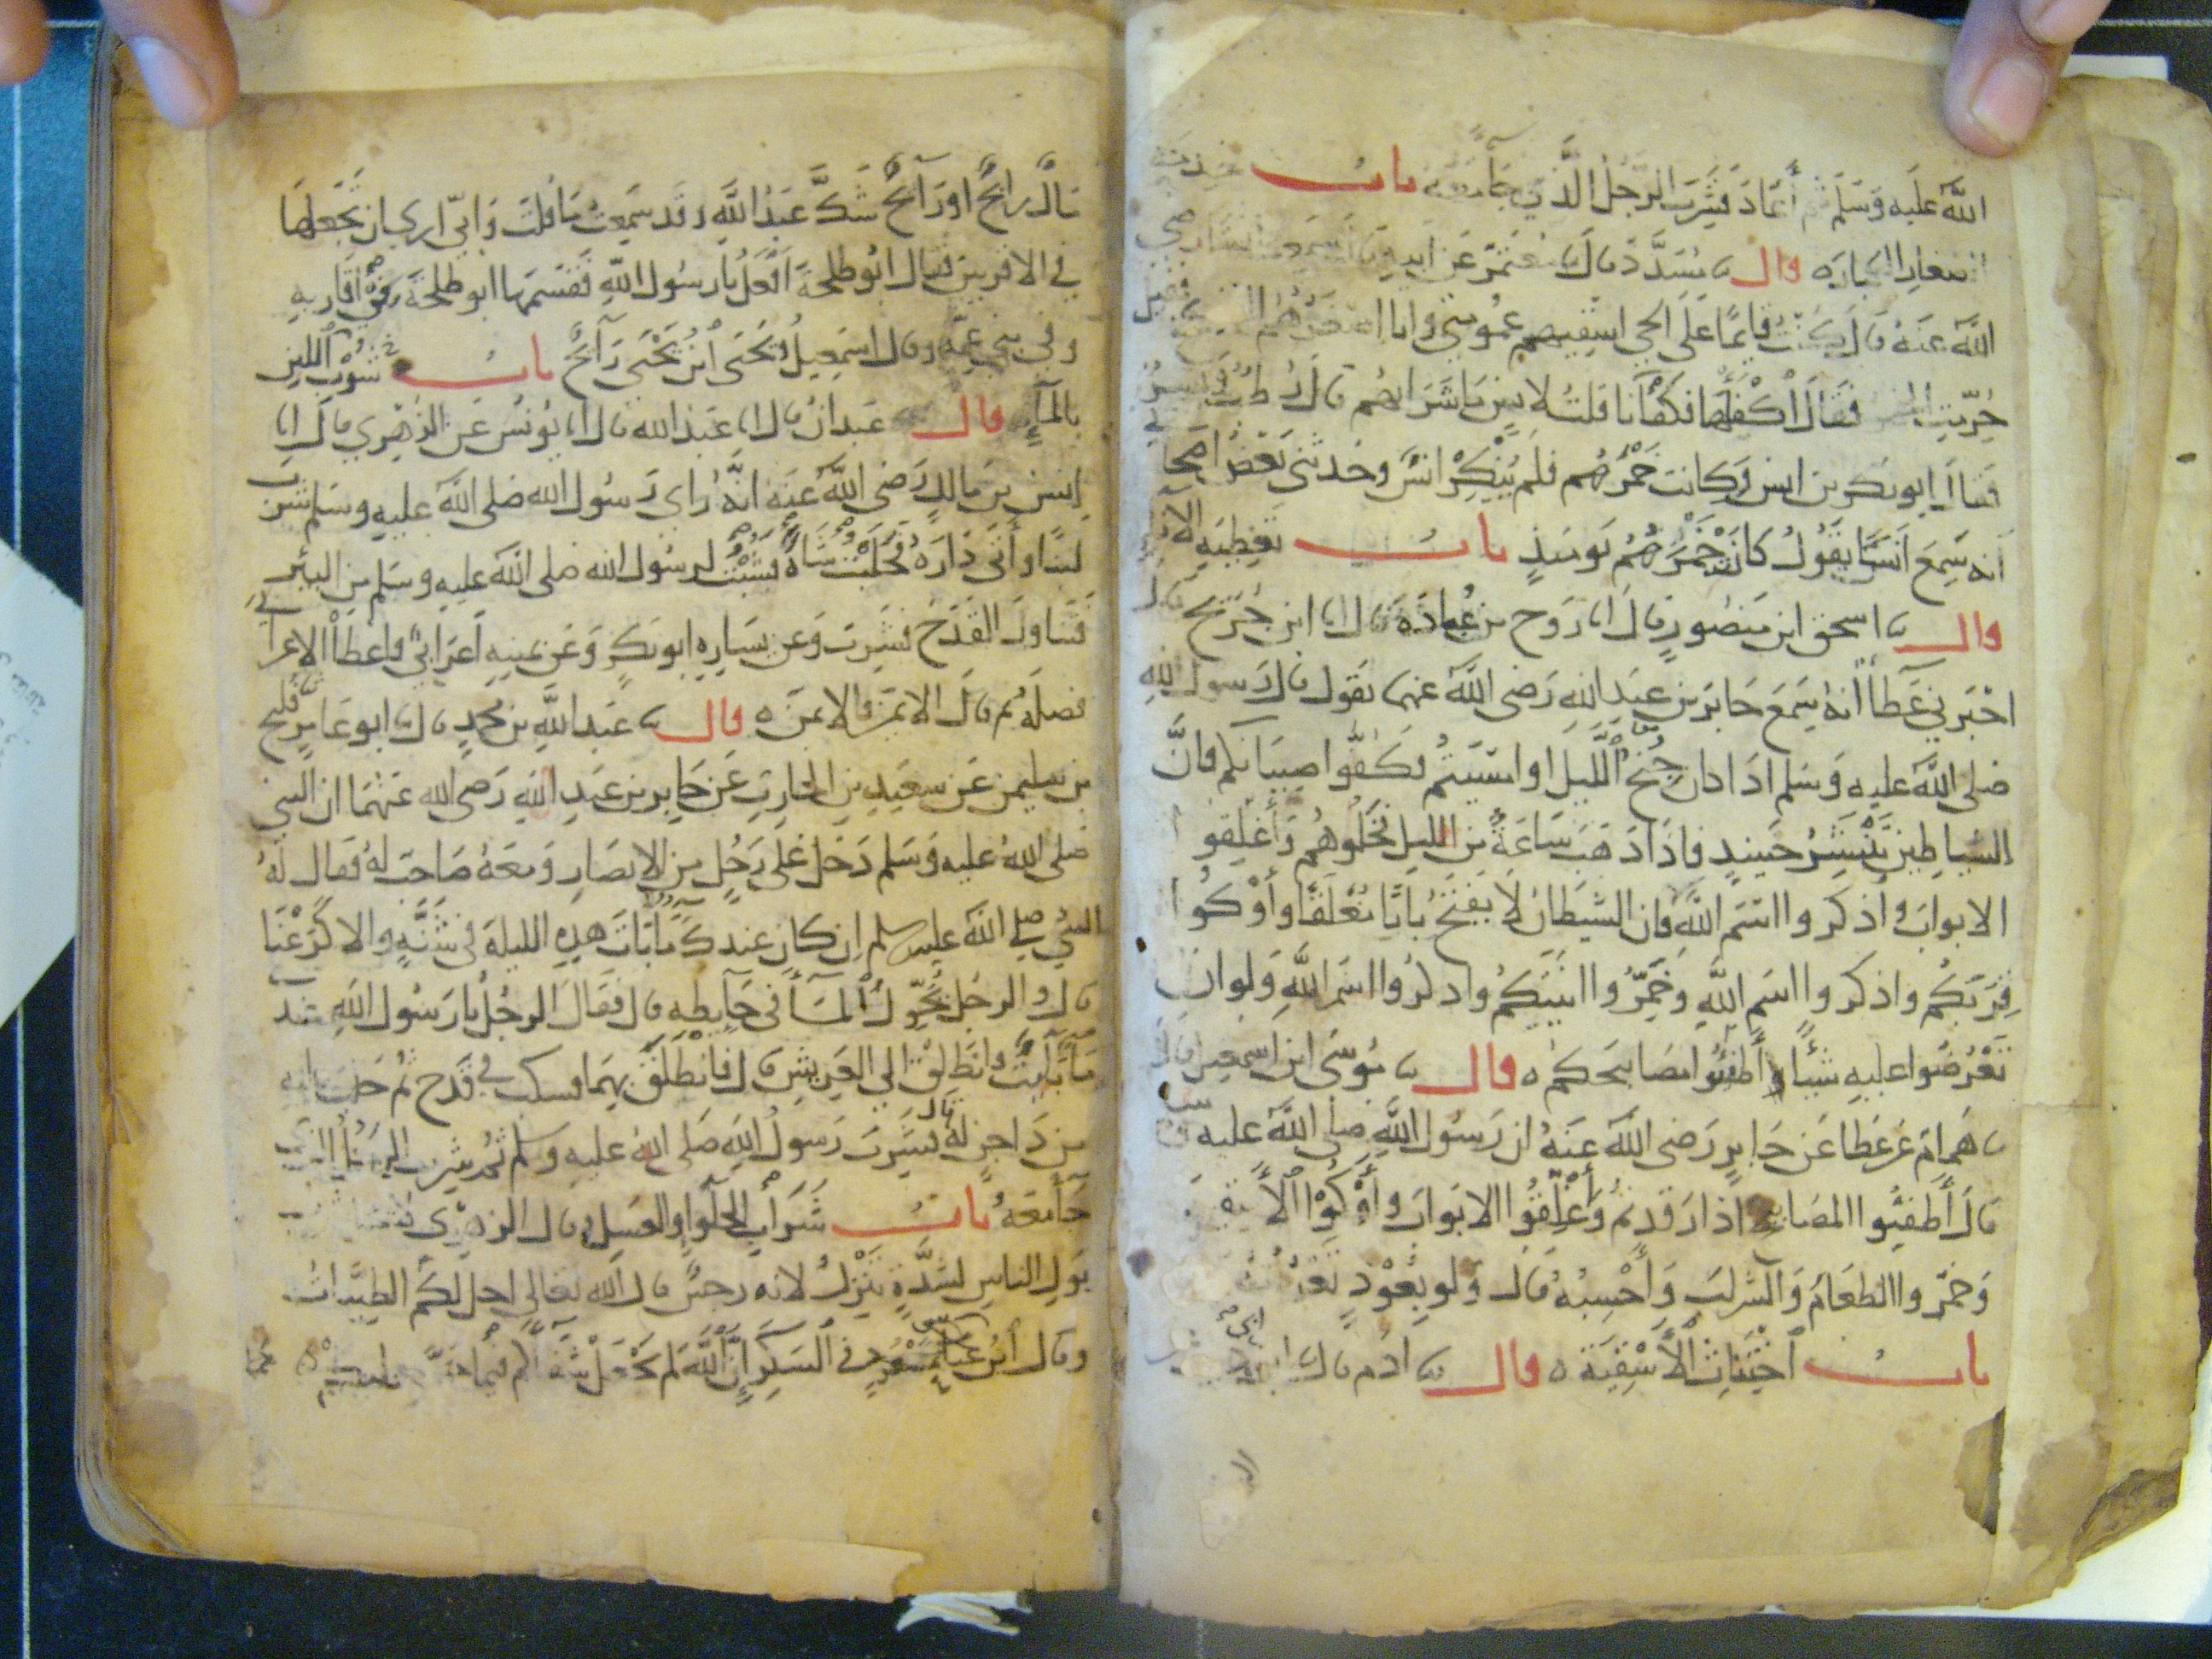 الله عليه وسلم ثم أعاد فشرب الرجل الذي جا معه باب خدمة
الصغار الكبار ه قال نا مسدد قال نا معتمر عن ابيه قال سمعت انسا رضي
الله عنه قال كنت قايما على الحي اسقيهم عمومتي وانا اصغرهم الفضيخ فقيل
حرمت الخمر فقال اكفئها فكفأنا قلت لانس ما شرابهم قال رطب وبسر
فقال ابو بكر بن انس وكانت خمرهم فلم ينكر انس وحدثني بعض اصحابي
انه سمع انسا يقول كانت خمرهم يومئذ باب تغطية الانا
قال نا اسحق ابن منصور قال انا روح بن عبادة قال انا ابن جريج قال
اخبرني عطا أنه سمع جابر بن عبد الله رضى الله عنهما يقول قال رسول الله
صلى الله عليه وسلم اذا كان جنح الليل او امسيتم فكفوا صبيانكم فان
الشياطين تنتشر حينئذ فاذا ذهب ساعة من الليل فخلوهم وأغلقوا
الابواب واذكروا اسم الله فان الشيطان لا يفتح بابا مغلقا وأوكوا
قربكم واذكروا اسم الله وخمروا انيتكم واذكروا اسم الله ولو ان
تعرضوا عليه شيئا وأطفئوا مصابيحكم ه قال نا موسى ابن اسمعيل قال
نا همام عن عطا عن جابر رضى الله عنه ان رسول الله صلى الله عليه
قال أطفئوا المصابيح اذا رقدتم وأغلقوا الابواب وأوكوا الأسقية
وخمروا الطعام والشراب وأحسبه قال ولو بعود تعرضه
باب اختناث الأسقية ه قال نا ادم قال نا ابن
ذلك مال رابح او رايح شك عبد الله وقد سمعت ما قلت واني ارى ان تجعلها
في الاقربين فقال ابو طلحة افعل يا رسول الله فقسمها ابو طلحة في اقاربه
وفي بني عمه وقال اسمعيل ويحيى ابن يحيى رايح باب شوب اللبن
بالمآء قال عبدان قال انا عبد الله قال انا يونس عن الزهري قال انا
انس بن مالك رضى الله عنه انه راى رسول الله صلى الله عليه وسلم شرب
لبنا وأتى داره فحلبت شاة فشبت لرسول الله صلى الله عليه وسلم من البئر
فتناول القدح فشرب وعن يساره ابو بكر وعن يمينه اعرابي فاعطا الاعرابي
فضله ثم قال الايمن فالايمن ه قال نا عبد الله بن محمد قال نا ابو عامر نا فليح
بن سليمن عن سعيد بن الحارث عن جابر بن عبد الله رضى الله عنهما ان النبي
صلى الله عليه وسلم دخل على رجل من الانصار ومعه صاحب له فقال له
النبي صلى الله عليه وسلم ان كان عندك ما بات هذه الليلة في شنة والا كرعنا
قال والرجل يحول المآء في حايطه قال فقال الرجل يا رسول الله عندي
مآء بايت وانطلق الى العريش قال فانطلق بهما فسكب في قدح ثم حلب عليه
من داجن له قال فشرب رسول الله صلى الله عليه وسلم ثم شرب الرجل الذي
جا معه باب شراب الحلوا والعسل وقال الزهري
بول الناس لشدة تنزل لانه رجس قال الله تعالى احل لكم الطيبات
وقال أبن مسعود في السكر إن الله لم يجعل شفاكم فيما حرم عليكم